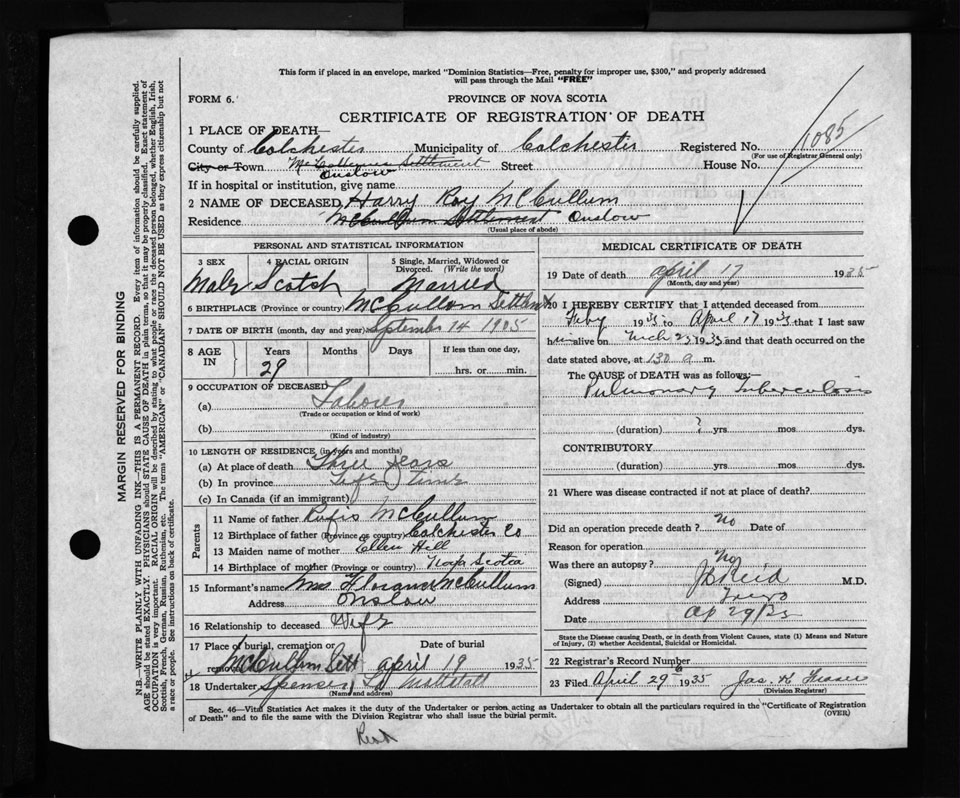 This form if placed in an envelope, marked "Dominion Statistics—Free, penalty for improper use, $300," and properly addressed
will pass through the Mail "FREE"
FORM 6.
PROVINCE OF NOVA SCOTIA
CERTIFICATE OF REGISTRATION OF DEATH
1085
1 PLACE OF DEATH—
County of Colchester Municipality of Colchester Registered No.
(For use of Registrar General only)
City or Town Settlement Street House No.
Onslow
If in hospital or institution, give name
2 NAME OF DECEASED, Harry Roy McCullum
Residence McCullum Settlement Onslow
(Usual place of abode)
PERSONAL AND STATISTICAL INFORMATION
3 SEX 4 RACIAL ORIGIN 5 Single, Married, Widowed or Divorced. (Write the word)
Male Scotch Married
6 BIRTHPLACE (Province or country) McCullum
7 DATE OF BIRTH (month, day and year) September 14 1905
8 AGE IN Years Months Days If less than one day,
29 hrs. or min.
9 OCCUPATION OF DECEASED
(a) Laborer
(Trade or occupation or kind of work)
(b)
(Kind of industry)
10 LENGTH OF RESIDENCE (in years and months)
(a) At place of death Three years
(b) In province Life time
(c) In Canada (if an immigrant)
Parents
11 Name of father Rufis McCullum
12 Birthplace of father (Province or country) Colchester Co
13 Maiden name of mother Ellen Hill
14 Birthplace of mother (Province or country) Nova Scotia
15 Informant's name Mrs McCullum
Address Onslow
16 Relationship to deceased Wife
17 Place of burial, cremation or removal Date of burial
McCullum Sett April 19 1935
18 Undertaker Spencer
(Name and address)
MEDICAL CERTIFICATE OF DEATH
19 Date of death April 17 1935
(Month, day and year)
20 I HEREBY CERTIFY that I attended deceased from
Feby 1935 to April 17 1935 that I last saw
him alive on Mch 1935 and that death occurred on the
date stated above, at 1 30 a m.
The CAUSE OF DEATH was as follows:—
Pulmonary Tuberculosis
(duration) ? yrs. mos. dys.
CONTRIBUTORY
(duration) yrs. mos. dys.
21 Where was disease contracted if not at place of death?
Did an operation precede death? no Date of
Reason for operation
Was there an autopsy? No
(Signed) Reid M.D.
Address Truro
Date Ap 29/35
State the Disease causing Death, or in death from Violent Causes, state (1) Means and Nature
of Injury, (2) whether Accidental, Suicidal or Homicidal.
22 Registrar's Record Number
23 Filed April 29 1935 Jas. K Fraser
(Division Registrar)
Sec. 46—Vital Statistics Act makes it the duty of the Undertaker or person acting as Undertaker to obtain all the particulars required in the "Certificate of Registration
of Death" and to file the same with the Division Registrar who shall issue the burial permit.
(OVER)
MARGIN RESERVED FOR BINDING
N.B.—WRITE PLAINLY WITH UNFADING INK—THIS IS A PERMANENT RECORD. Every item of information should be carefully supplied.
AGE should be stated EXACTLY. PHYSICIANS should STATE CAUSE OF DEATH in plain terms, so that it may be properly classified. Exact statement of
OCCUPATION is very important. RACIAL ORIGIN will be described by stating to what people or race the deceased person belonged, whether English, Irish,
Scottish, French, German, Russian, Ruthenian, etc. The terms "AMERICAN" or "CANADIAN" SHOULD NOT BE USED as they express citizenship but not
a race or people. See instructions on back of certificate.